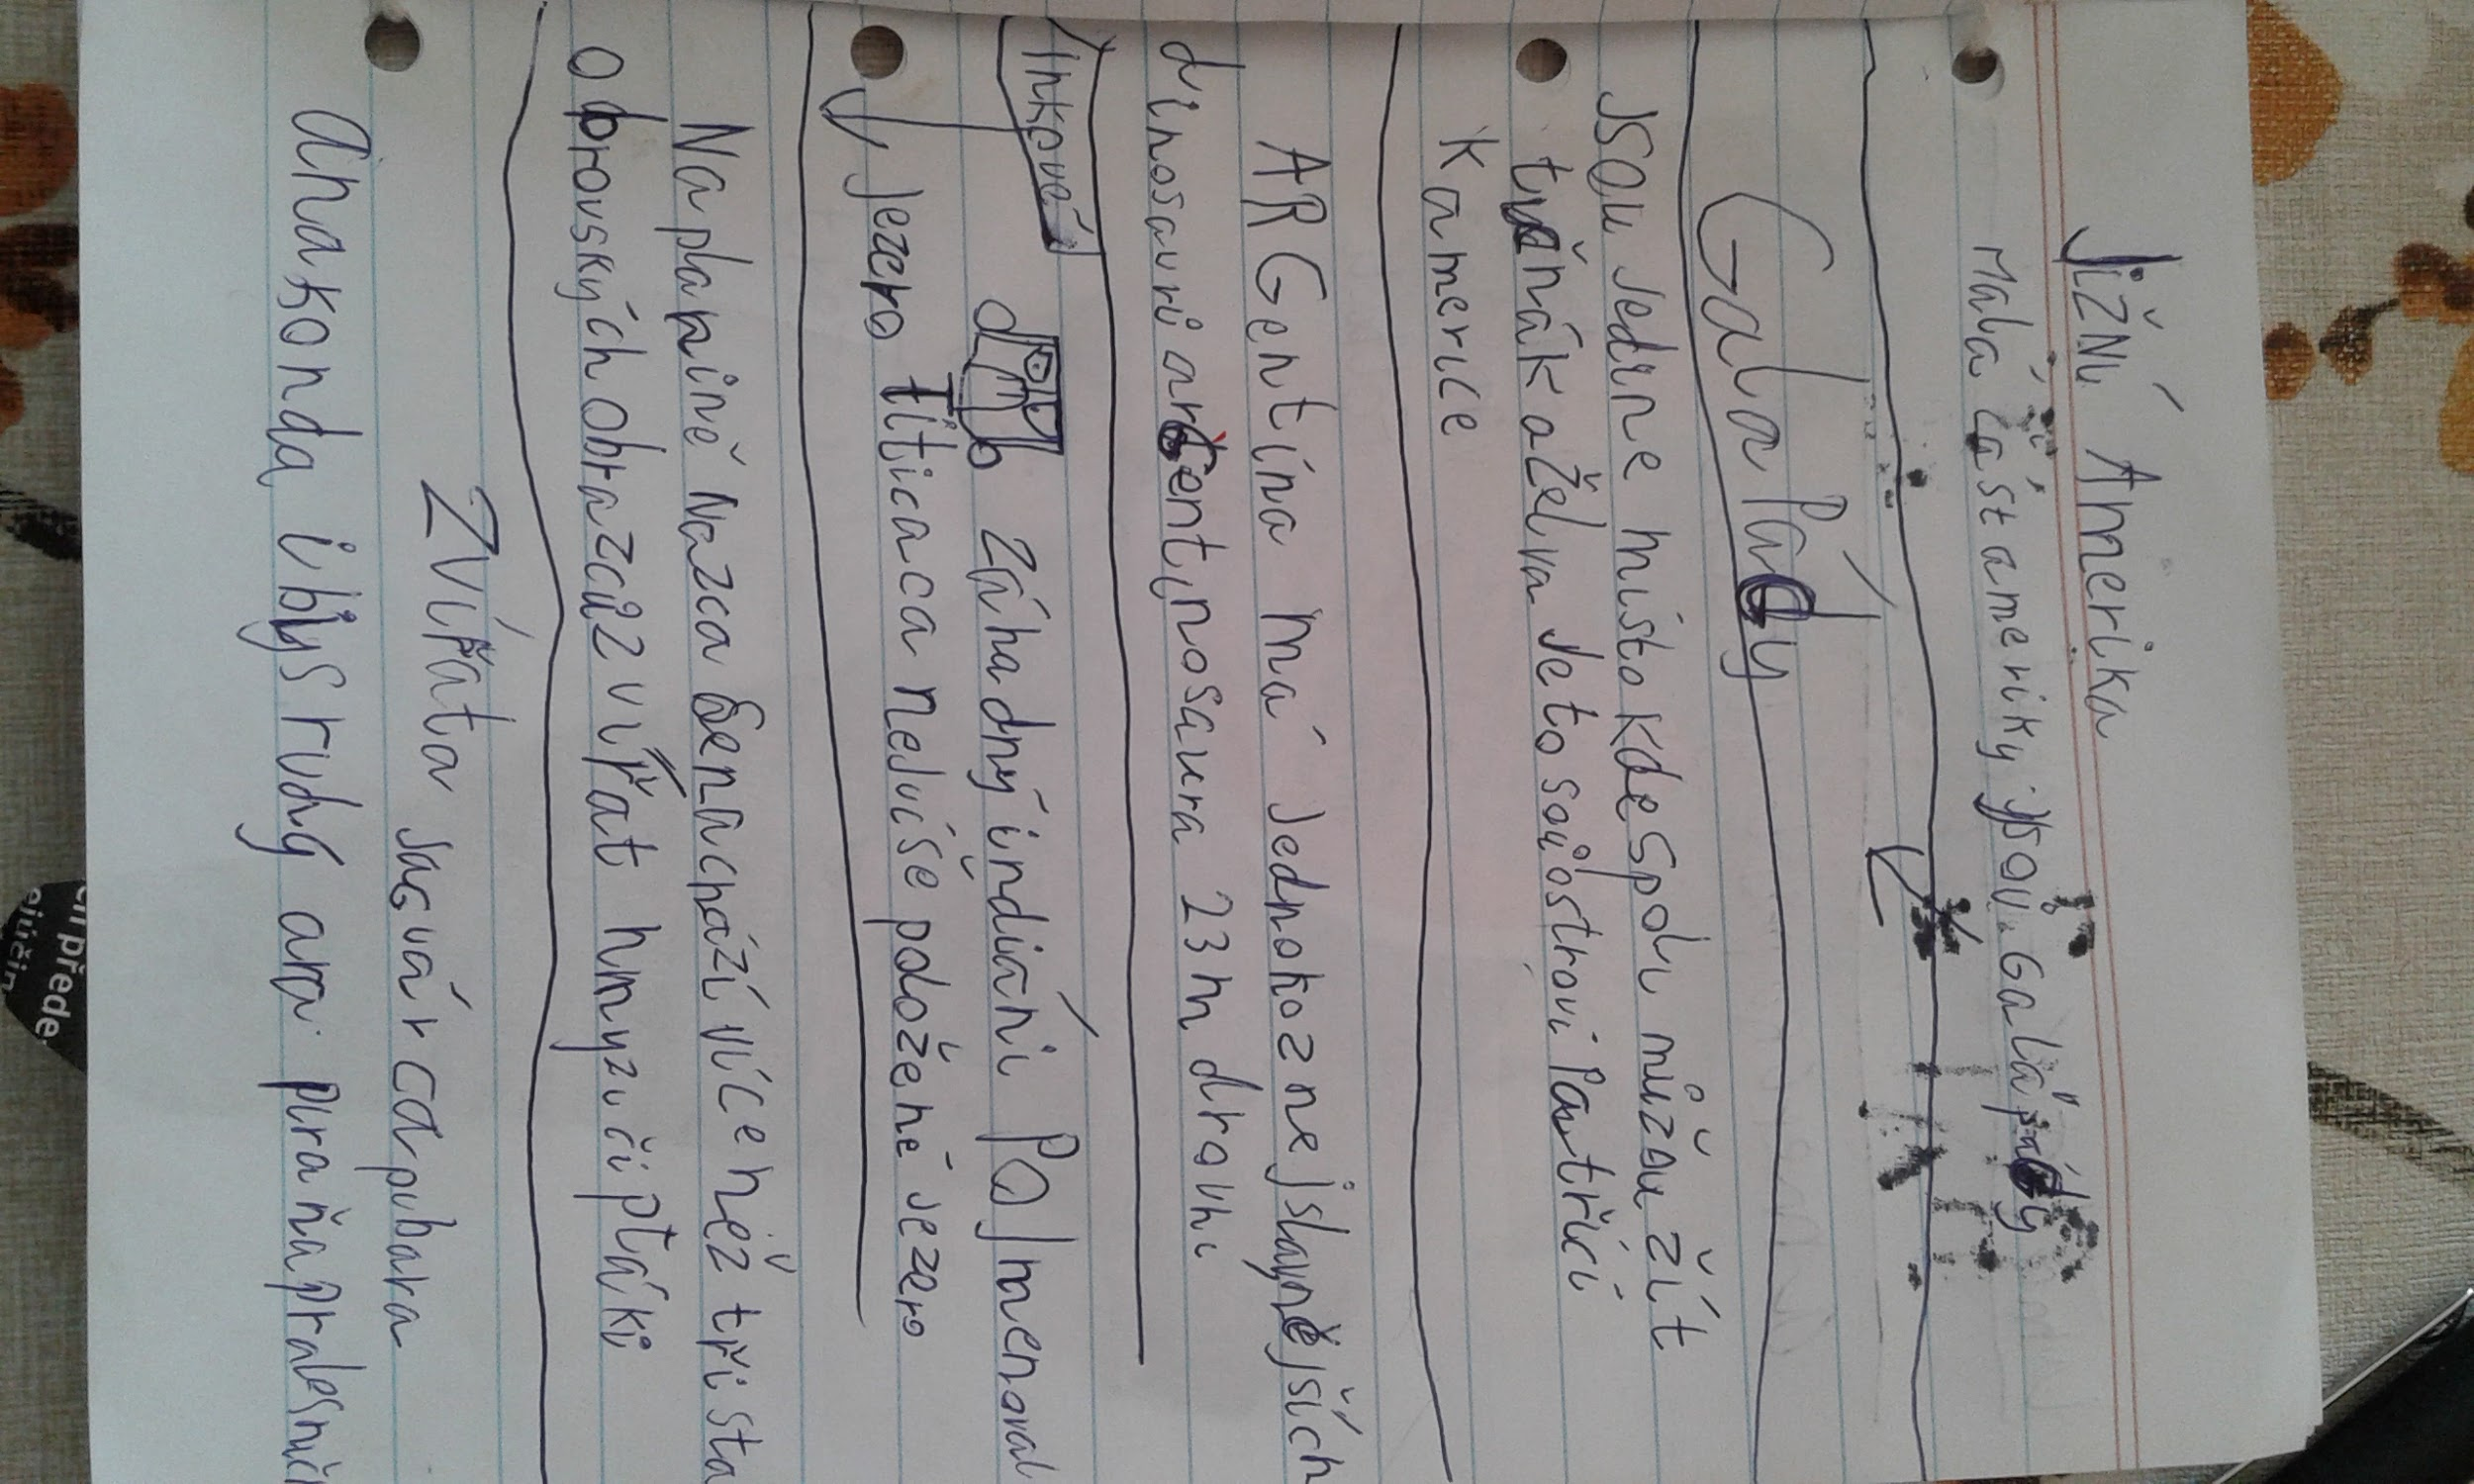 Jižní Amerika
Malá část ameriky jsou. Galápády
Galapády
Jsou jedine místo kde spolu můžou žít
tučňák a želva Jeto souostroví Patřící
K americe
ARGentina má jednoho z nejslavnějších
dinosauri argentinosaura 23m drouhí
Inkové
záhadný indiáni Pojmenoval
Jezero titicaca nejvíše položené jezero
Na planině Nazca senachází více než třista
obrovských obrazců zvířat hmyzu či ptáki
Zvířata Jaguár capybara
anakonda ibys rudý ara piraňa pralesnič
en přede
ejúčin